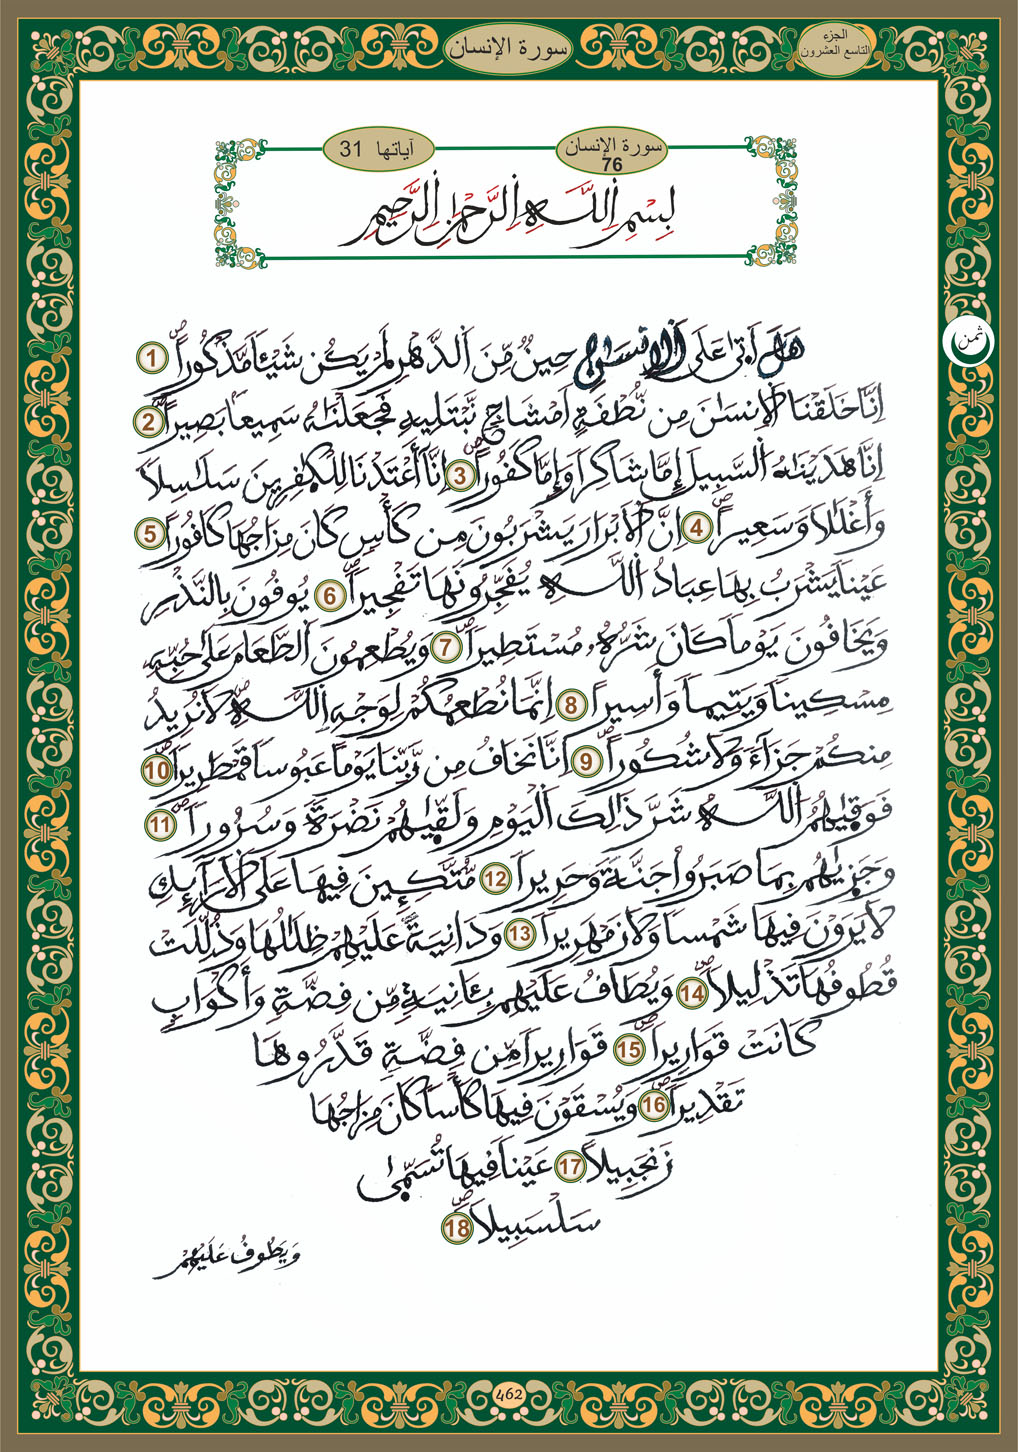 الجزء
التاسع العشرون
سورة الإنسان
سورة الإنسان
76
آياتها 31
بِسْمِ اِللَّهِ اِلرَّحْمَٰنِ اِلرَّحِيمِ
ثمن
هَلَ اَتىٰ عَلَى اَلِانسَٰنِ حِينٌ مِّنَ اَلدَّهْرِ لَمْ يَكُن شَيْـٔاً مَّذْكُوراًۖ 1
اِنَّا خَلَقْنَا اَلِانسَٰنَ مِن نُّطْفَةٍ اَمْشَاجٖ نَّبْتَلِيهِ فَجَعَلْنَٰهُ سَمِيعاَۢ بَصِيراًۖ 2
اِنَّا هَدَيْنَٰهُ اُلسَّبِيلَ إِمَّا شَاكِراً وَإِمَّا كَفُوراًۖ 3 اِنَّآ أَعْتَدْنَا لِلْكٰفِرِينَ سَلَٰسِلاً
وَأَغْلَٰلاً وَسَعِيراًۖ 4 اِنَّ اَلَابْرَارَ يَشْرَبُونَ مِن كَأْسٖ كَانَ مِزَاجُهَا كَافُوراً 5
عَيْناً يَشْرَبُ بِهَا عِبَادُ اُللَّهِ يُفَجِّرُونَهَا تَفْجِيراًۖ 6 يُوفُونَ بِالنَّذْرِ
وَيَخَافُونَ يَوْماً كَانَ شَرُّهُۥ مُسْتَطِيراًۖ 7 وَيُطْعِمُونَ اَلطَّعَامَ عَلَىٰ حُبِّهِۦ
مِسْكِيناً وَيَتِيماً وَأَسِيراً 8 اِنَّمَا نُطْعِمُكُمْ لِوَجْهِ اِللَّهِۖ لَا نُرِيدُ
مِنكُمْ جَزَآءً وَلَا شُكُوراًۖ 9 اِنَّا نَخَافُ مِن رَّبِّنَا يَوْماً عَبُوساً قَمْطَرِيراًۖ 10
فَوَقٰىٰهُمُ اُللَّهُ شَرَّ ذَٰلِكَ اَلْيَوْمِ وَلَقّٰىٰهُمْ نَضْرَةً وَسُرُوراًۖ 11
وَجَزٰىٰهُم بِمَا صَبَرُواْ جَنَّةً وَحَرِيراً 12 مُّتَّكِـِٕينَ فِيهَا عَلَى اَلَارَآئِكِ
لَا يَرَوْنَ فِيهَا شَمْساً وَلَا زَمْهَرِيراً 13 وَدَانِيَةً عَلَيْهِمْ ظِلَٰلُهَا وَذُلِّلَتْ
قُطُوفُهَا تَذْلِيلاًۖ 14 وَيُطَافُ عَلَيْهِم بِـَٔانِيَةٖ مِّن فِضَّةٖ وَأَكْوَابٖ
كَانَتْ قَوَارِيراًۖ 15 قَوَارِيراً مِّن فِضَّةٖ قَدَّرُوهَا
تَقْدِيراًۖ 16 وَيُسْقَوْنَ فِيهَا كَأْساً كَانَ مِزَاجُهَا
زَنجَبِيلاً 17 عَيْناً فِيهَا تُسَمّىٰ
سَلْسَبِيلاًۖ 18
وَيَطُوفُ عَلَيْهِمْ
462